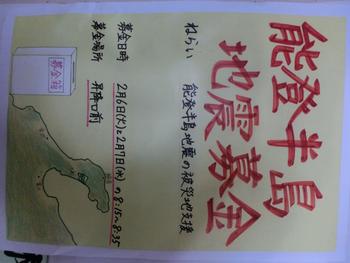 能登半島
地震募金
ねらい 能登半島地震の被災地支援
募金日時 2月6日(火)と2月7日(水)の8:15〜8:35
募金場所 昇降口前
募金箱